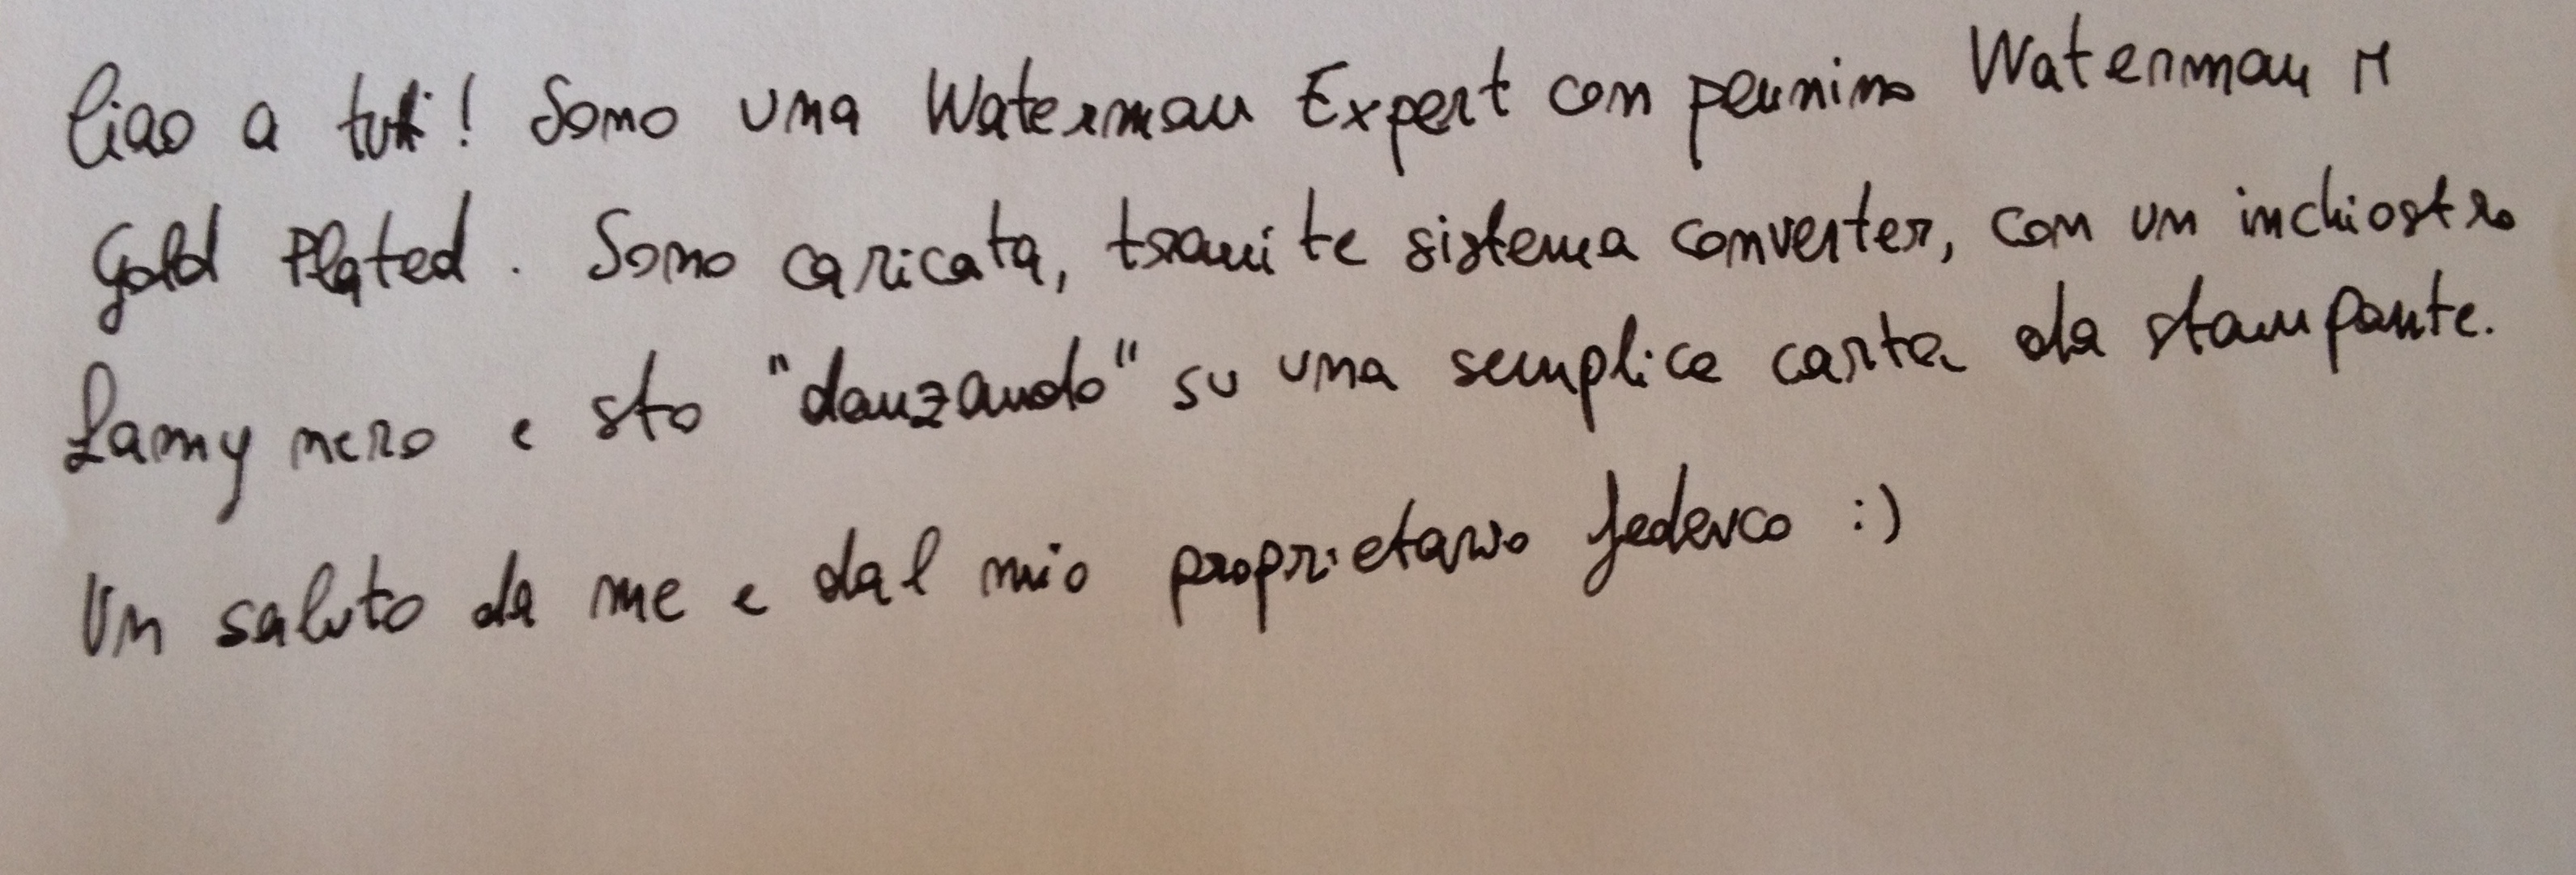 Ciao a tutti! Sono una Waterman Expert con pennino Waterman M
Gold Plated. Sono caricata, tramite sistema converter, con un inchiostro
Lamy nero e sto "danzando" su una semplice carta da stampante.
Un saluto da me e dal mio proprietario Federico :)